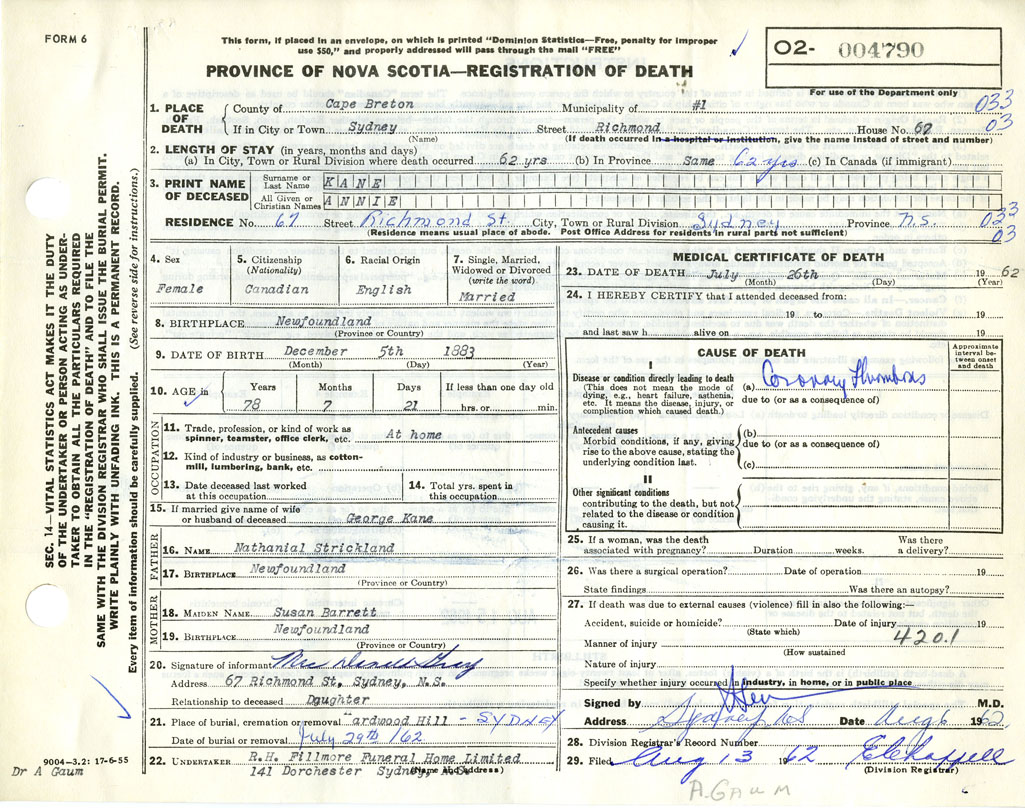 FORM 6
This form, if placed in an envelope, on which is printed "Dominion Statistics—Free, penalty for improper
use $50," and properly addressed will pass through the mail "FREE"
02- 004790
For use of the Department only
PROVINCE OF NOVA SCOTIA—REGISTRATION OF DEATH
1. PLACE OF DEATH
County of Cape Breton Municipality of #1 033
If in City or Town Sydney Street Richmond House No. 67 03
(Name) (If death occurred in a hospital or institution, give the name instead of street and number)
2. LENGTH OF STAY (in years, months and days)
(a) In City, Town or Rural Division where death occurred 62 yrs (b) In Province Same 62 yrs (c) In Canada (if immigrant)
3. PRINT NAME OF DECEASED
Surname or Last Name KANE
All Given or Christian Names ANNIE
RESIDENCE No. 67 Street Richmond St. City, Town or Rural Division Sydney Province N.S. 033
(Residence means usual place of abode. Post Office Address for residents in rural parts not sufficient) 03
4. Sex
Female
5. Citizenship
(Nationality)
Canadian
6. Racial Origin
English
7. Single, Married,
Widowed or Divorced
(write the word)
Married
8. BIRTHPLACE Newfoundland
(Province or Country)
9. DATE OF BIRTH December 5th 1883
(Month) (Day) (Year)
10. AGE in
Years Months Days If less than one day old
78 7 21 hrs. or min.
OCCUPATION
11. Trade, profession, or kind of work as
spinner, teamster, office clerk, etc. At home
12. Kind of industry or business, as cotton-
mill, lumbering, bank, etc.
13. Date deceased last worked
at this occupation
14. Total yrs. spent in
this occupation
15. If married give name of wife
or husband of deceased George Kane
FATHER
16. NAME Nathanial Strickland
17. BIRTHPLACE Newfoundland
(Province or Country)
MOTHER
18. MAIDEN NAME Susan Barrett
19. BIRTHPLACE Newfoundland
(Province or Country)
20. Signature of informant Mrs
Address 67 Richmond St, Sydney, N.S.
Relationship to deceased Daughter
21. Place of burial, cremation or removal ardwood Hill - SYDNEY
Date of burial or removal July 29th /62
22. UNDERTAKER R.H. Fillmore Funeral Home Limited
141 Dorchester Sydney, N.S.
(Name and Address)
MEDICAL CERTIFICATE OF DEATH
23. DATE OF DEATH July 26th 1962
(Month) (Day) (Year)
24. I HEREBY CERTIFY that I attended deceased from:
19 to
and last saw h alive on 19
CAUSE OF DEATH
Approximate
interval be-
tween onset
and death
I
Disease or condition directly leading to death
(This does not mean the mode of
dying, e.g., heart failure, asthenia,
etc. It means the disease, injury, or
complication which caused death.)
(a) Coronary Thrombosis
due to (or as a consequence of)
Antecedent causes
Morbid conditions, if any, giving
rise to the above cause, stating the
underlying condition last.
(b)
due to (or as a consequence of)
(c)
II
Other significant conditions
contributing to the death, but not
related to the disease or condition
causing it.
25. If a woman, was the death Was there
associated with pregnancy? Duration weeks. a delivery?
26. Was there a surgical operation? Date of operation 19
State findings Was there an autopsy?
27. If death was due to external causes (violence) fill in also the following:—
Accident, suicide or homicide? Date of injury 19
(State which)
420.1
Manner of injury
(How sustained
Nature of injury
Specify whether injury occurred in industry, in home, or in public place
Signed by M.D.
Address Sydney NS Date Aug 6 1962
28. Division Registrar's Record Number
29. Filed Aug 13 1962
(Division Registrar)
SEC. 14—VITAL STATISTICS ACT MAKES IT THE DUTY
OF THE UNDERTAKER OR PERSON ACTING AS UNDER-
TAKER TO OBTAIN ALL THE PARTICULARS REQUIRED
IN THE "REGISTRATION OF DEATH" AND TO FILE THE
SAME WITH THE DIVISION REGISTRAR WHO SHALL ISSUE THE BURIAL PERMIT.
WRITE PLAINLY WITH UNFADING INK. THIS IS A PERMANENT RECORD.
Every item of information should be carefully supplied. (See reverse side for instructions.)
9004-3.2: 17-6-55
Dr A Gaum
A. GAUM